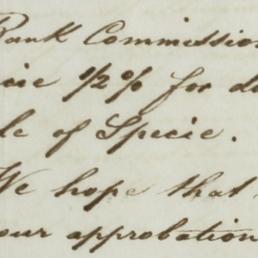 Bank Commission
cie 1/2% for d
le of Specie.
We hope that
our approbation